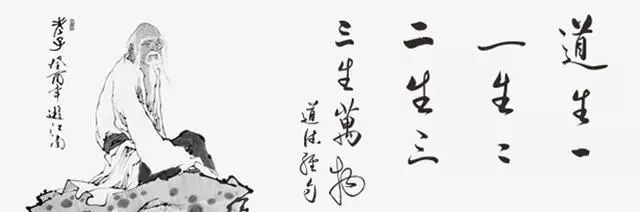 道生一
一生二
二生三
三生萬物
道德經句
老子
癸酉年遊江南